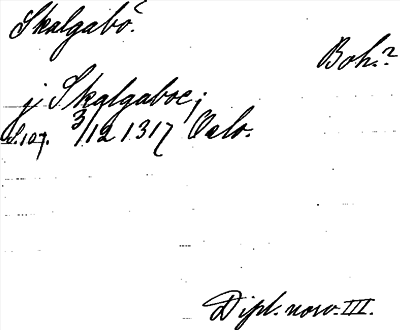 Skalgabö?
Boh.?
j Skalgaboe;
S. 107. 3/12 1317 Oslo.
Dipl. norv. III.